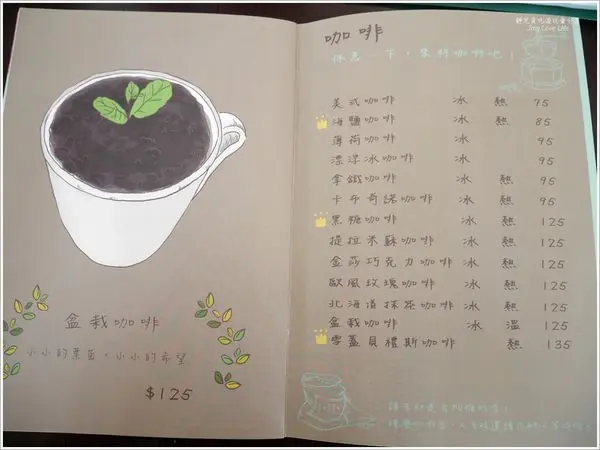 盆栽咖啡
小小的葉苗，小小的希望
$125
Jing Love Life
咖啡
休息一下，來杯咖啡吧！
美式咖啡 冰 熱 75
海鹽咖啡 冰 熱 85
薄荷咖啡 冰 95
漂浮冰咖啡 冰 95
拿鐵咖啡 冰 熱 95
卡布奇諾咖啡 冰 熱 95
黑糖咖啡 冰 熱 125
提拉米蘇咖啡 冰 熱 125
金莎巧克力咖啡 冰 熱 125
歐風玫瑰咖啡 冰 熱 125
北海道抹茶咖啡 冰 熱 125
盆栽咖啡 冰 溫 125
雪蓋貝禮斯咖啡 熱 135